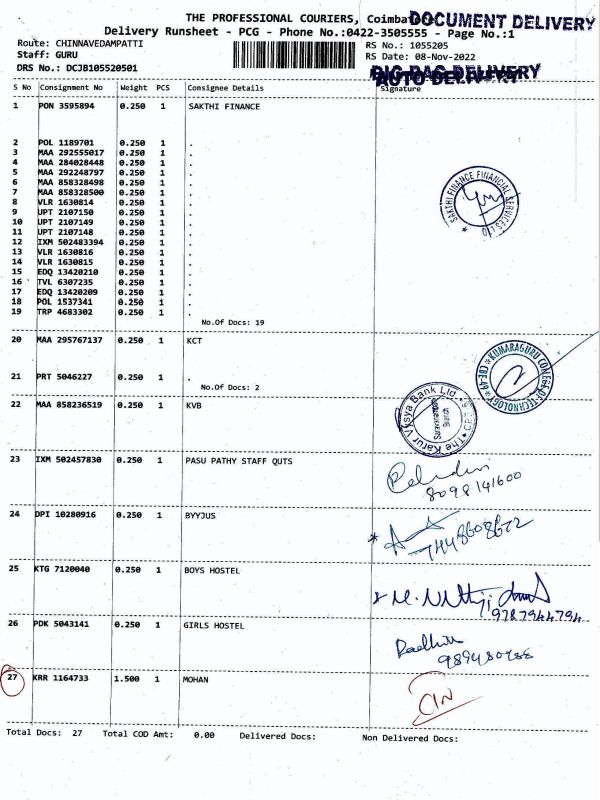 THE PROFESSIONAL COURIERS, Coimbatore
DOCUMENT DELIVERY
Delivery Runsheet - PCG - Phone No.:0422-3505555 - Page No.:1
Route: CHINNAVEDAMPATTI RS No.: 1055205
Staff: GURU RS Date: 08-Nov-2022
DRS No.: DCJB105520501
S No Consignment No Weight PCS Consignee Details Signature
1 PON 3595894 0.250 1 SAKTHI FINANCE
2 POL 1189701 0.250 1 .
3 MAA 292555017 0.250 1 .
4 MAA 284028448 0.250 1 .
5 MAA 292248797 0.250 1 .
6 MAA 858328498 0.250 1 .
7 MAA 858328500 0.250 1 .
8 VLR 1630814 0.250 1 .
9 UPT 2107150 0.250 1 .
10 UPT 2107149 0.250 1 .
11 UPT 2107148 0.250 1 .
12 IXM 502483394 0.250 1 .
13 VLR 1630816 0.250 1 .
14 VLR 1630815 0.250 1 .
15 EDQ 13420210 0.250 1 .
16 TVL 6307235 0.250 1 .
17 EDQ 13420209 0.250 1 .
18 POL 1537341 0.250 1 .
19 TRP 4683302 0.250 1 .
No.Of Docs: 19
SAKTHI FINANCE FINANCIAL SERVICES LTD
20 MAA 295767137 0.250 1 KCT
21 PRT 5046227 0.250 1 .
No.Of Docs: 2
KUMARAGURU COLLEGE OF TECHNOLOGY CBE-49
22 MAA 858236519 0.250 1 KVB
The Karur Vysya Bank Ltd.
Branch
23 IXM 502457830 0.250 1 PASU PATHY STAFF QUTS
8098141600
24 DPI 10280916 0.250 1 BYYJUS
25 KTG 7120040 0.250 1 BOYS HOSTEL
9787944794
26 PDK 5043141 0.250 1 GIRLS HOSTEL
27 KRR 1164733 1.500 1 MOHAN
Total Docs: 27 Total COD Amt: 0.00 Delivered Docs: Non Delivered Docs: